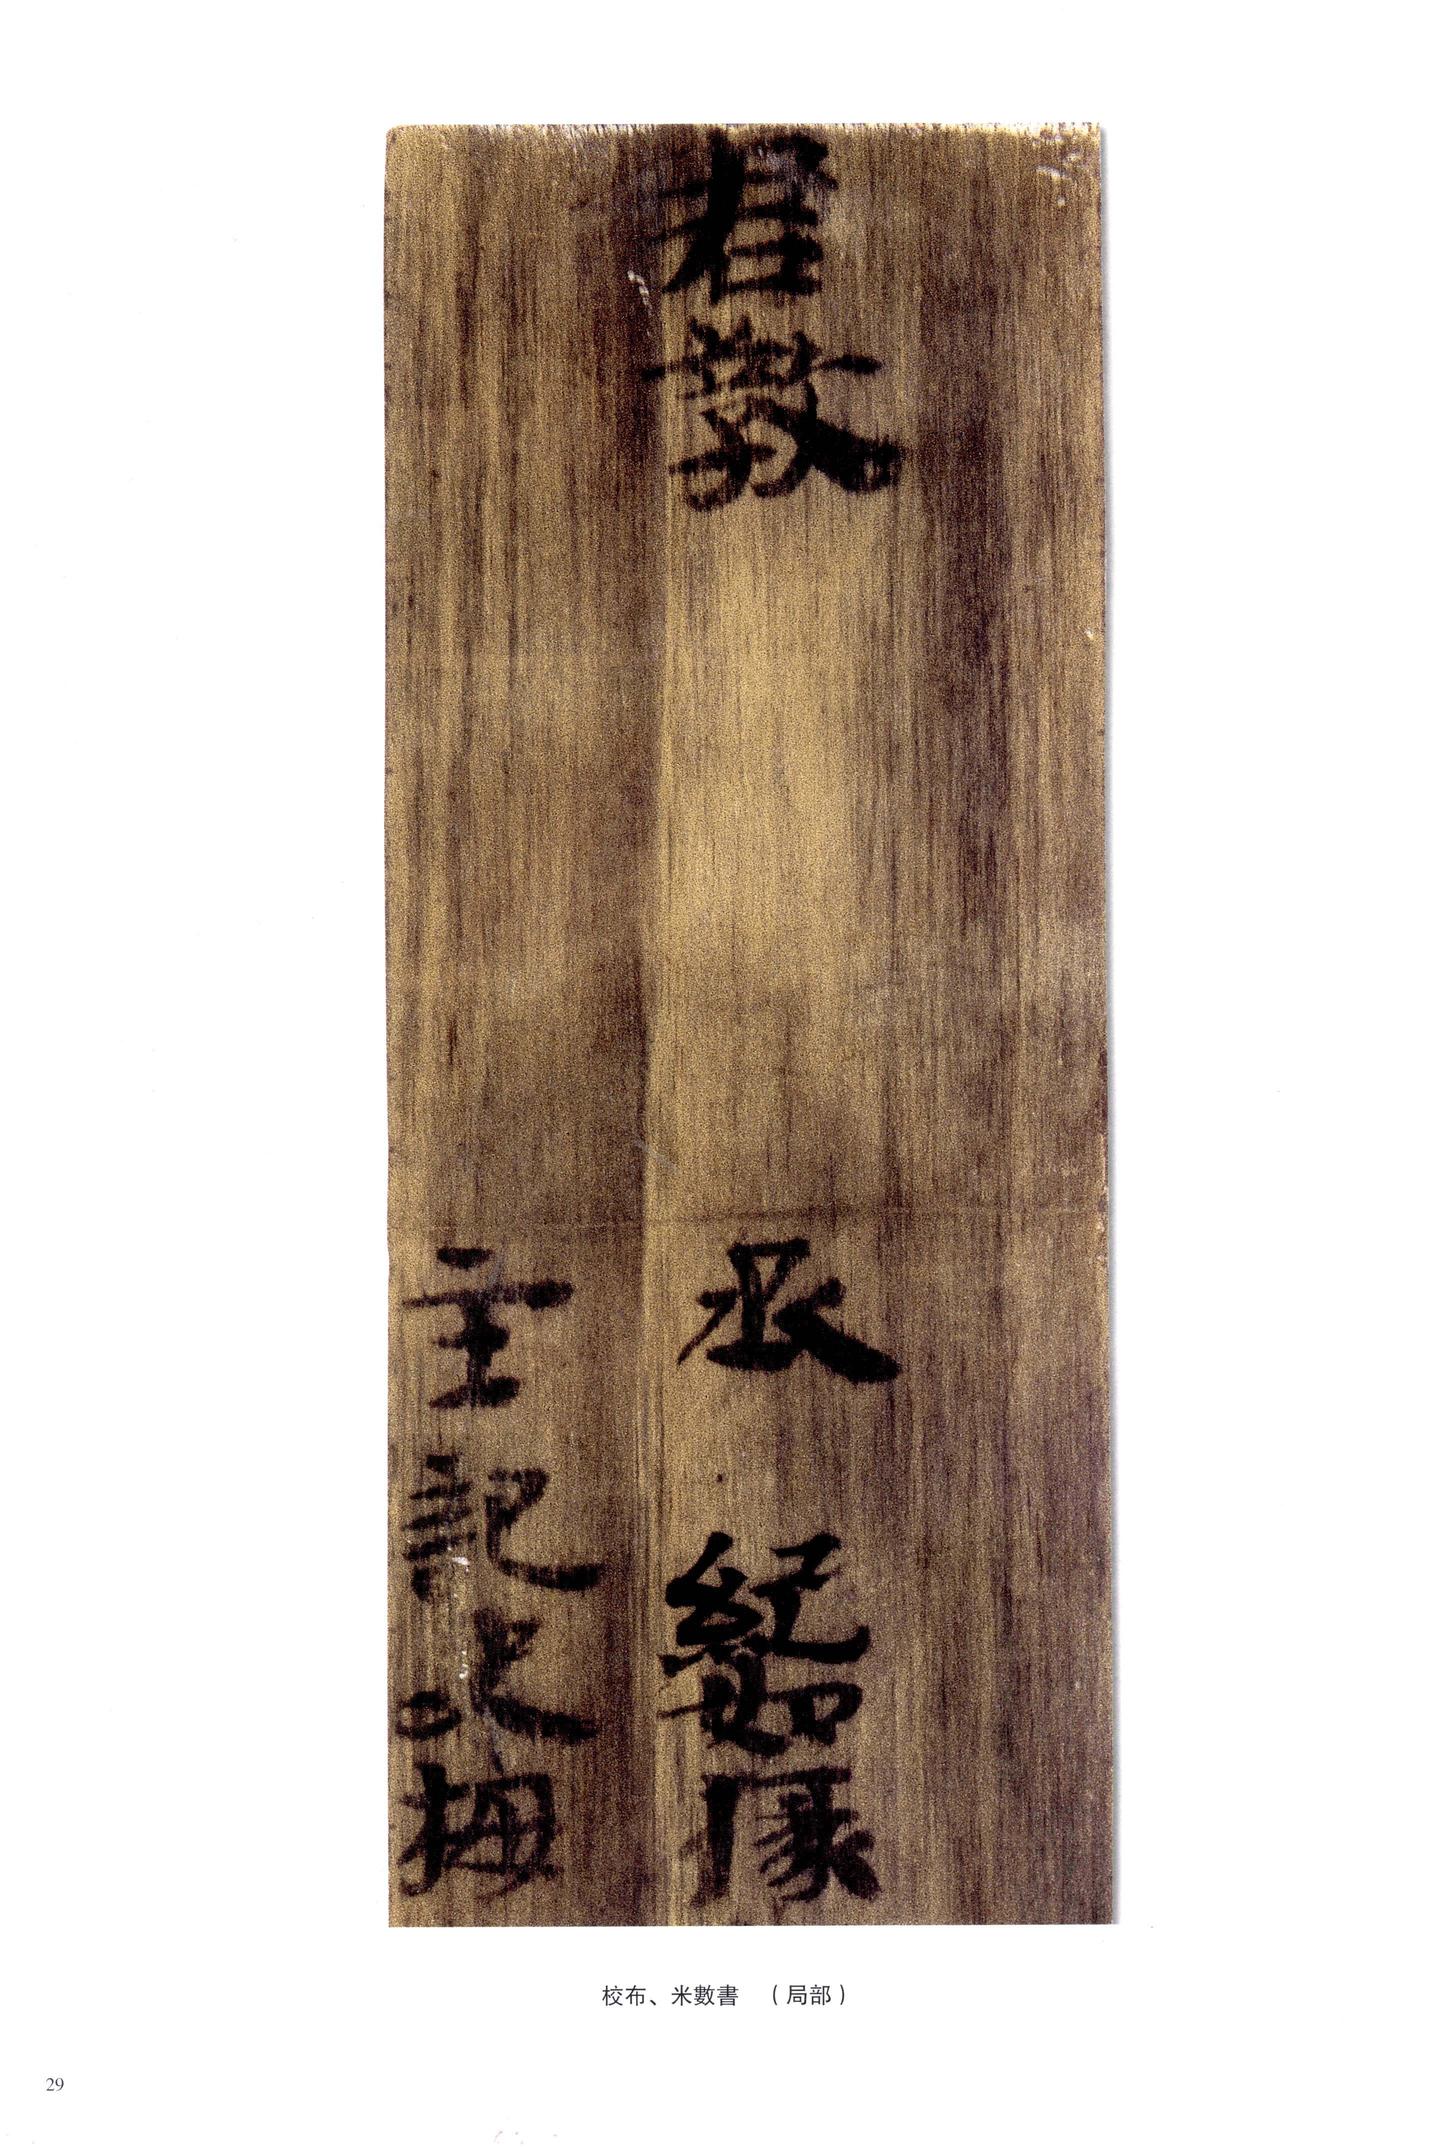 君教
丞 紀如掾
主記史梅
校布、米數書 （局部）
29